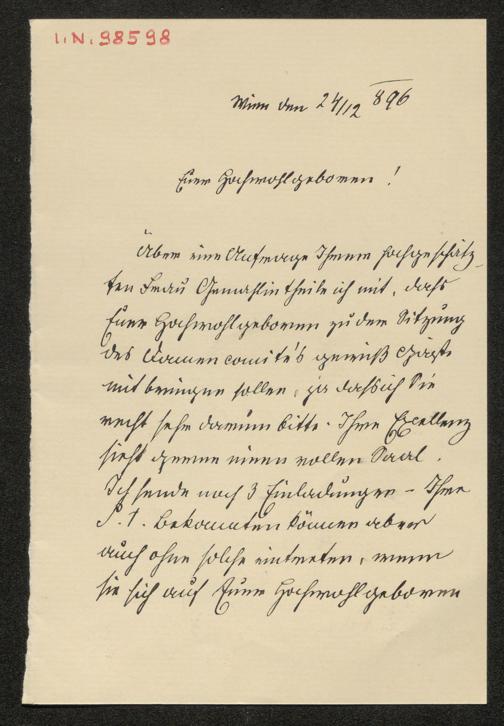 I.N. 98598
Wien den 24/12 896
Euer Hochwohlgeboren!
Über eine Anfrage Ihrer hochgeschätz-
ten Frau Gemahlin theile ich mit, dass
Euer Hochwohlgeboren zu der Sitzung
des Damencomité's gewiß Gäste
mitbringen sollen, ja dass ich Sie
recht sehr darum bitte. Ihre Excellenz
sieht gerne einen vollen Saal.
Ich sende noch 3 Einladungen – Ihre
P. T. Bekannten können aber
auch ohne solche eintreten, wenn
sie sich auf Euer Hochwohlgeboren